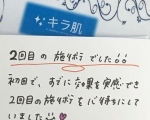 キラ肌
2回目の施りボテでした!!
初回で、すでに効果を実感でき
2回目の施りボテを心待ちにして
いました!!